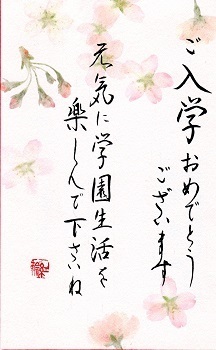 ご入学おめでとう
ございます
元気に学園生活を
楽しんで下さいね